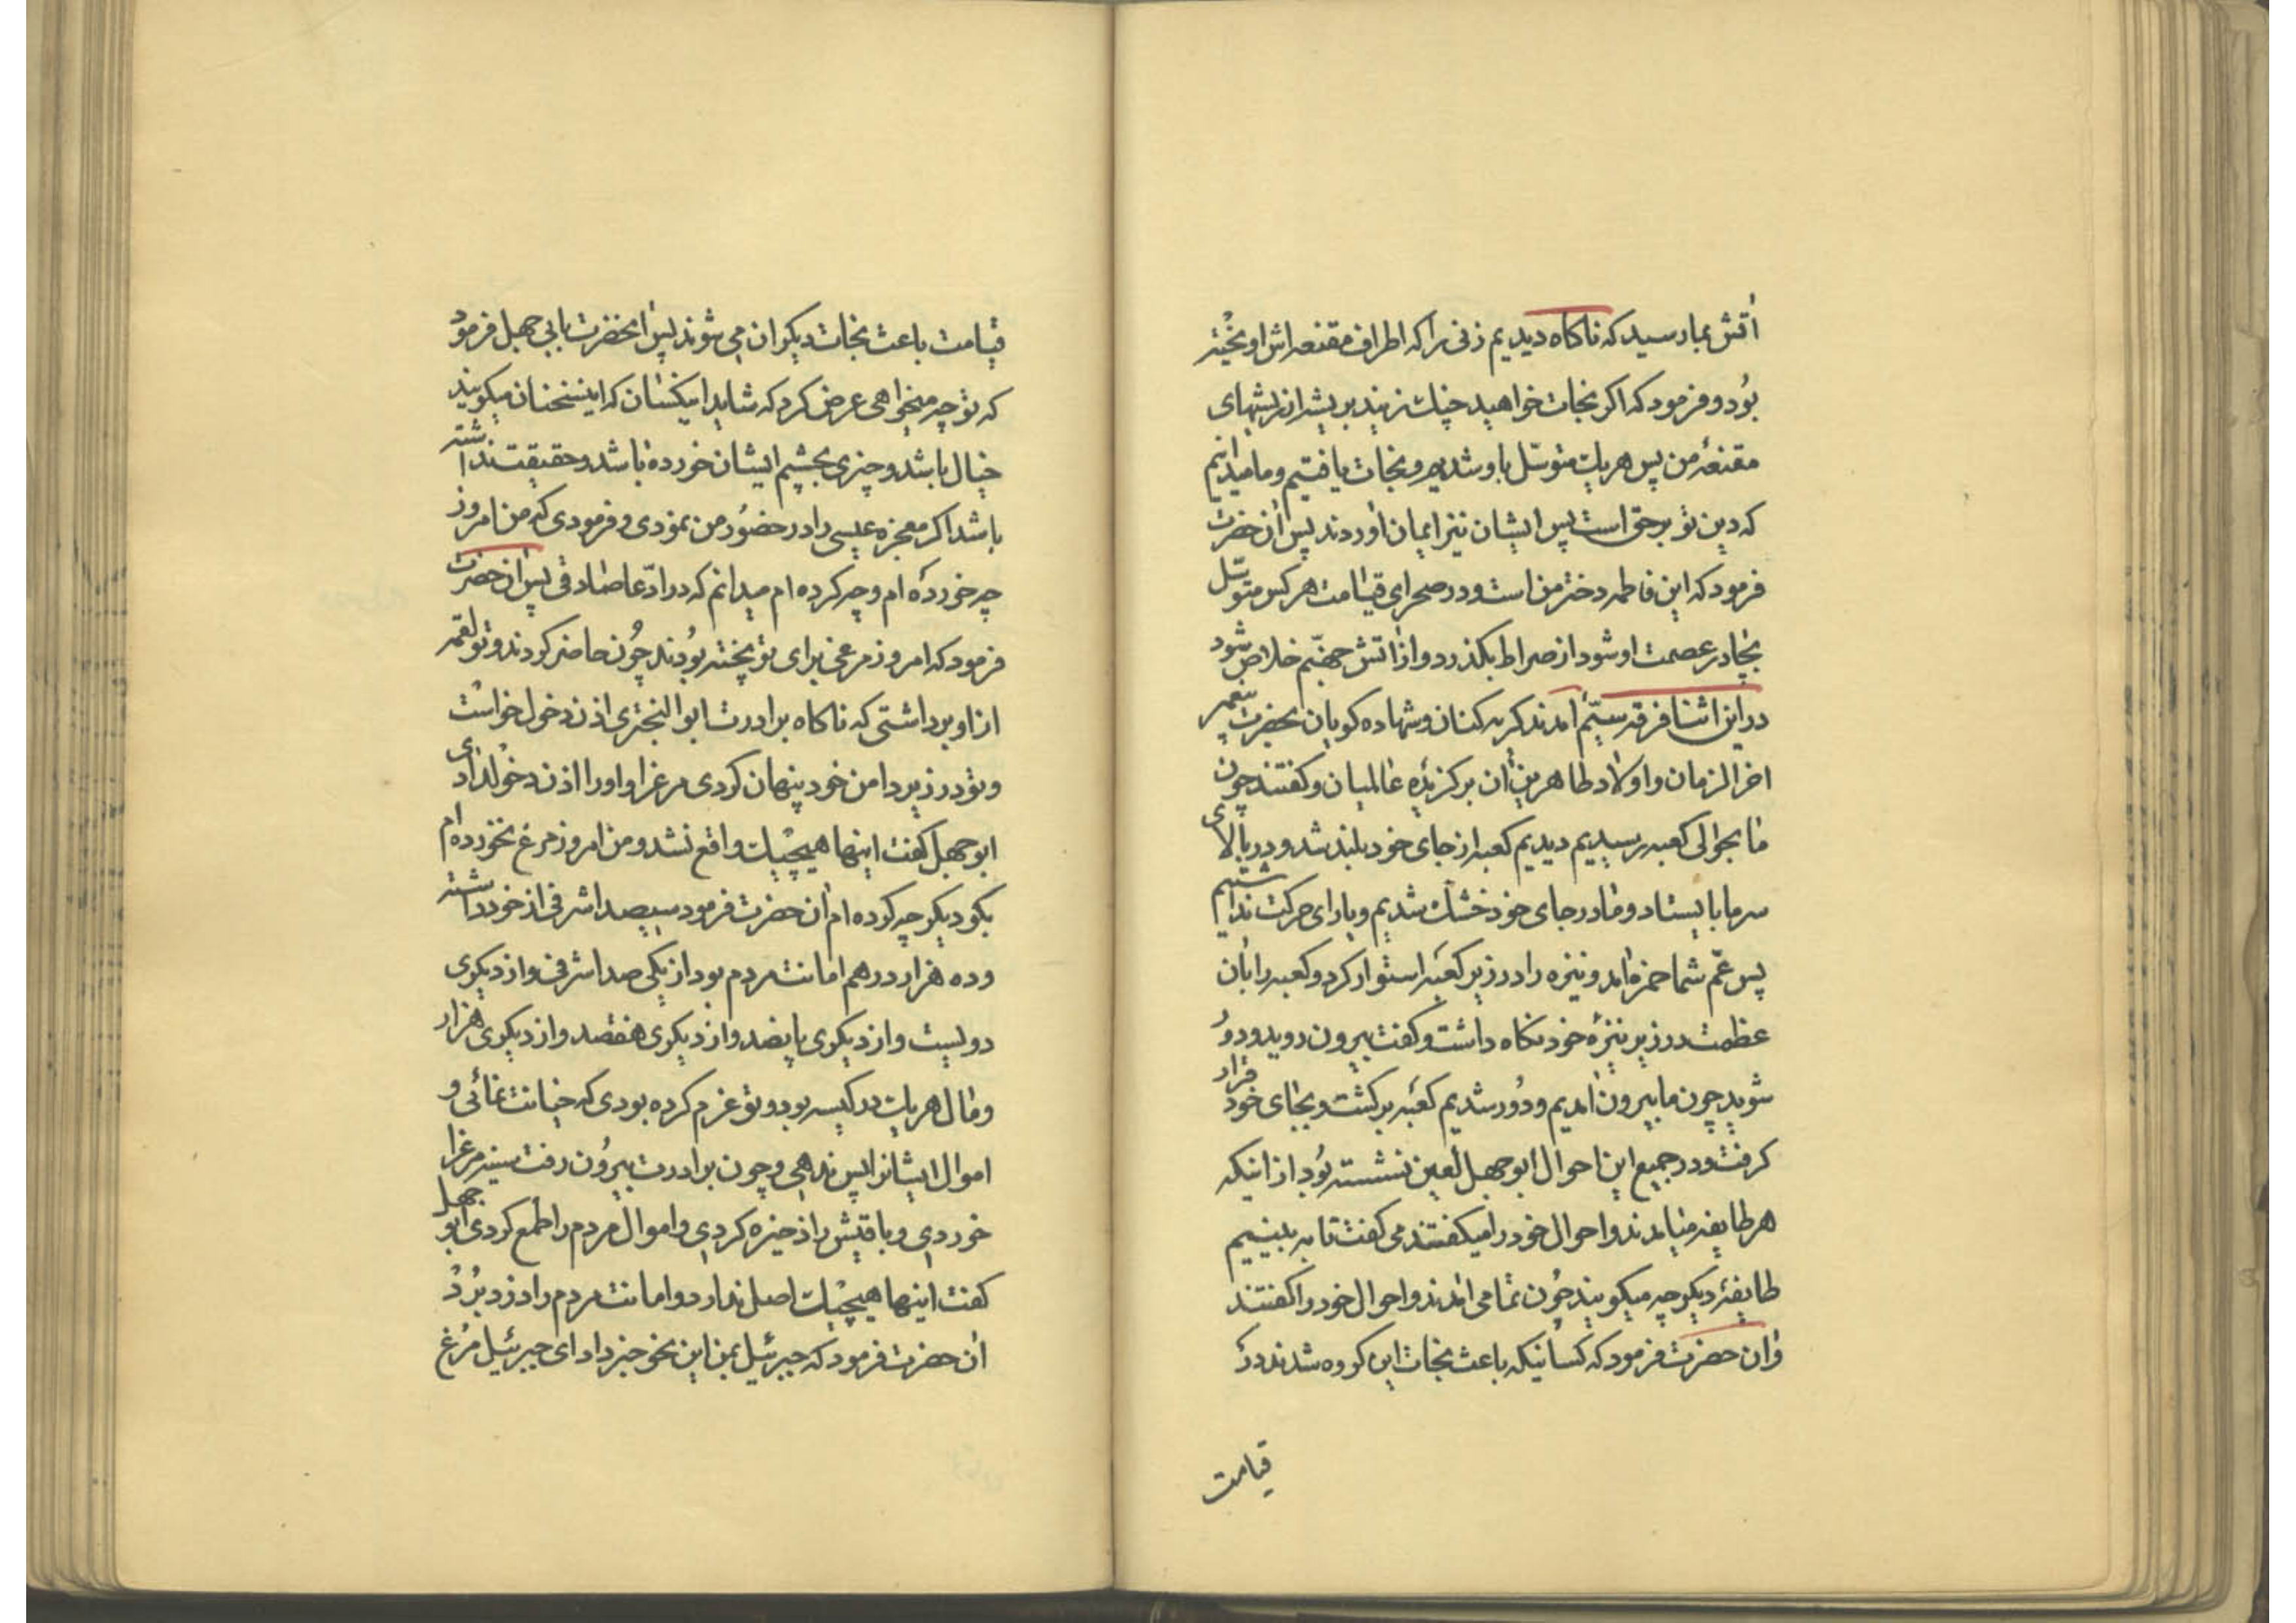 اتش بما رسید که ناکاه دیدیم زنی را که اطراف مقنعه اش اویخته
بود و فرمود که اکر نجات خواهید چنک زنید بریشه از ریشهای
مقنعهٔ من پس هریک متوسّل باو شدیم و نجات یافتیم و ما میدانیم
که دین تو برحق است پس ایشان نیز ایمان اوردند پس ان حضرت
فرمود که این فاطمه دختر من است و در صحرای قیامت هرکس متوسّل
بچادر عصمت او شود از صراط بکذرد و از اتش جهنّم خلاص شود
در این اثنا فرقه سیّم امدند کریه کنان و شهاده کویان بحضرت پیغمبر
اخر الزمان و اولاد طاهرین ان برکزیده عالمیان و کفتند چون
ما بحوالی کعبه رسیدیم دیدیم کعبه از جای خود بلند شد و در بالای
سر ما بایستاد و ما در جای خود خشک شدیم و یارای حرکت نداشتیم
پس عمّ شما حمزه امد و نیزه را در زیر کعبه استوار کرد و کعبه را بان
عظمت در زیر نیزهٔ خود نکاه داشت و کفت بیرون روید و دور
شوید چون ما بیرون امدیم و دور شدیم کعبه برکشت و بجای خود قرار
کرفت و در جمیع این احوال ابوجهل لعین نشسته بود از اینکه
هر طایفه میامدند و احوال خود را میکفتند می کفت تا به بینیم
طایفهٔ دیکر چه میکویند چون تمامی امدند و احوال خود را کفتند
و ان حضرت فرمود که کسانیکه باعث نجات این کروه شدند در
قیامت
قیامت باعث نجات دیکران می شوند پس انحضرت بابی جهل فرمود
که تو چه میخواهی عرض کرد که شاید اینکسان که اینسخنان میکویند
خیال باشد و چیزی بچشم ایشان خورده باشد و حقیقت نداشته
باشد اکر معجزه عیسی را در حضور من نمودی و فرمودی که من امروز
چه خورده ام و چه کرده ام میدانم که در ادّعا صادقی پس ان حضرت
فرمود که امروز مرغی برای تو پخته بودند چون حاضر کردند و تو لقمه
از او برداشتی که ناکاه برادرت ابو البختری اذن دخول خواست
و تو در زیر دامن خود پنهان کردی مرغرا و او را اذن دخول دادی
ابو جهل کفت اینها هیچیک واقع نشد و من امروز مرغ نخورده ام
بکو دیکر چه کرده ام ان حضرت فرمود سیصد اشرفی از خود داشته
و ده هزار درهم امانت مردم بود از یکی صد اشرفی و از دیکری
دویست و از دیکری پانصد و از دیکری هفتصد و از دیکری هزار
و مال هریک در کیسه بود و تو عزم کرده بودی که خیانت نمائی و
اموال ایشانرا پس ندهی و چون برادرت بیرون رفت سینه مرغرا
خوردی و باقیش را ذخیره کردی و اموال مردم را طمع کردی ابو جهل
کفت اینها هیچیک اصل ندارد و امانت مردم را دزد برد
ان حضرت فرمود که جبرئیل بمن این نحو خبر داد ای جبرئیل مرغ